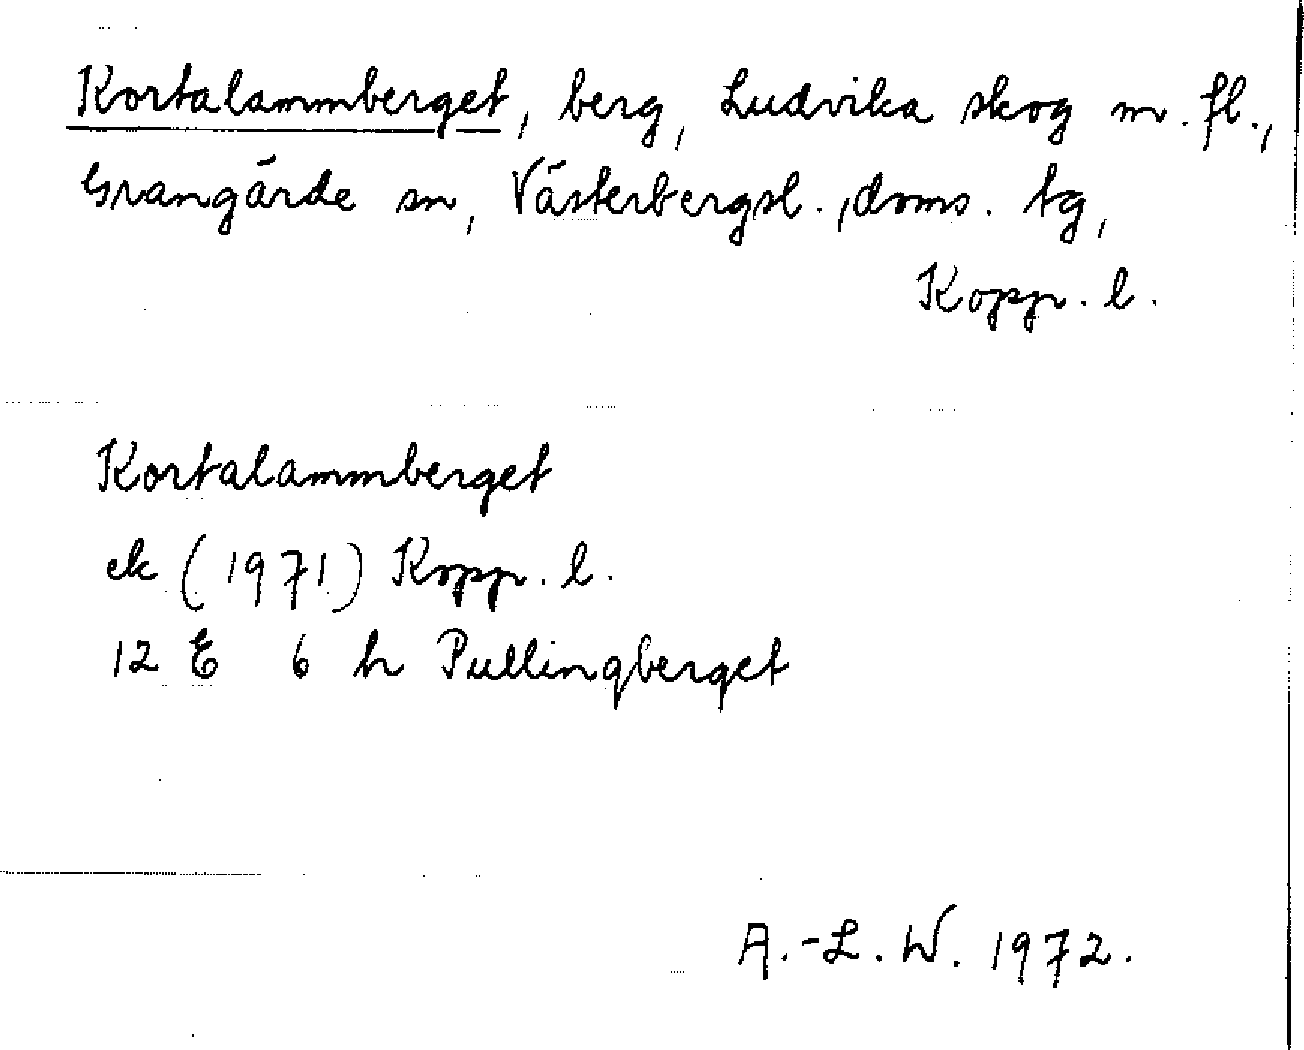 Kortalammberget, berg, Ludvika skog m. fl.,
Grangärde sn, Västerbergsl., doms. tg,
Kopp. l.
Kortalammberget
ek (1971) Kopp. l.
12 E 6 h Pullingberget
A.-L. W. 1972.